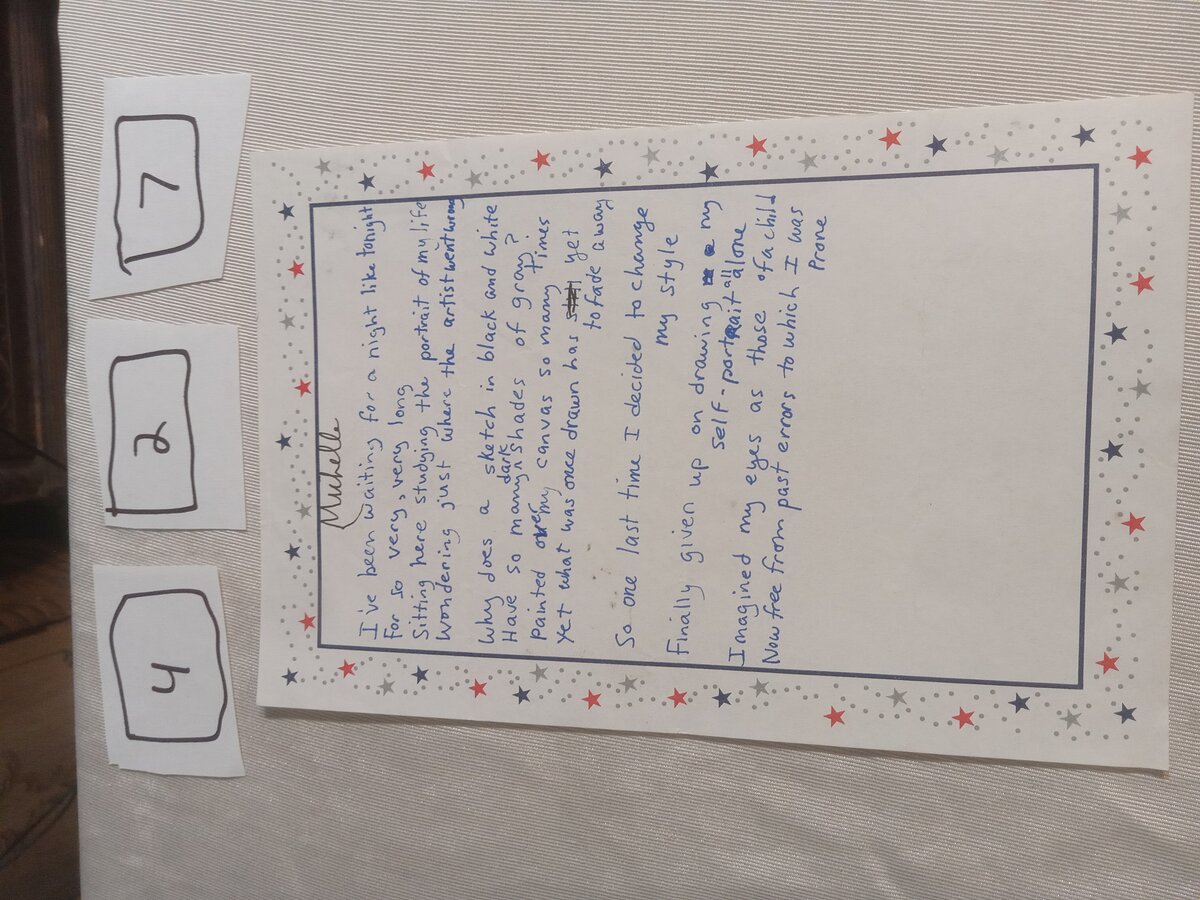 4
2
7
Michelle
I've been waiting for a night like tonight
For so very, very long
Sitting here studying the portrait of my life
Wondering just where the artist went wrong
Why does a sketch in black and white
Have so many dark shades of gray?
Painted over my canvas so many times
Yet what was once drawn has yet
to fade away
So one last time I decided to change
my style
Finally given up on drawing my
self-portrait all alone
Imagined my eyes as those of a child
Now free from past errors to which I was
Prone